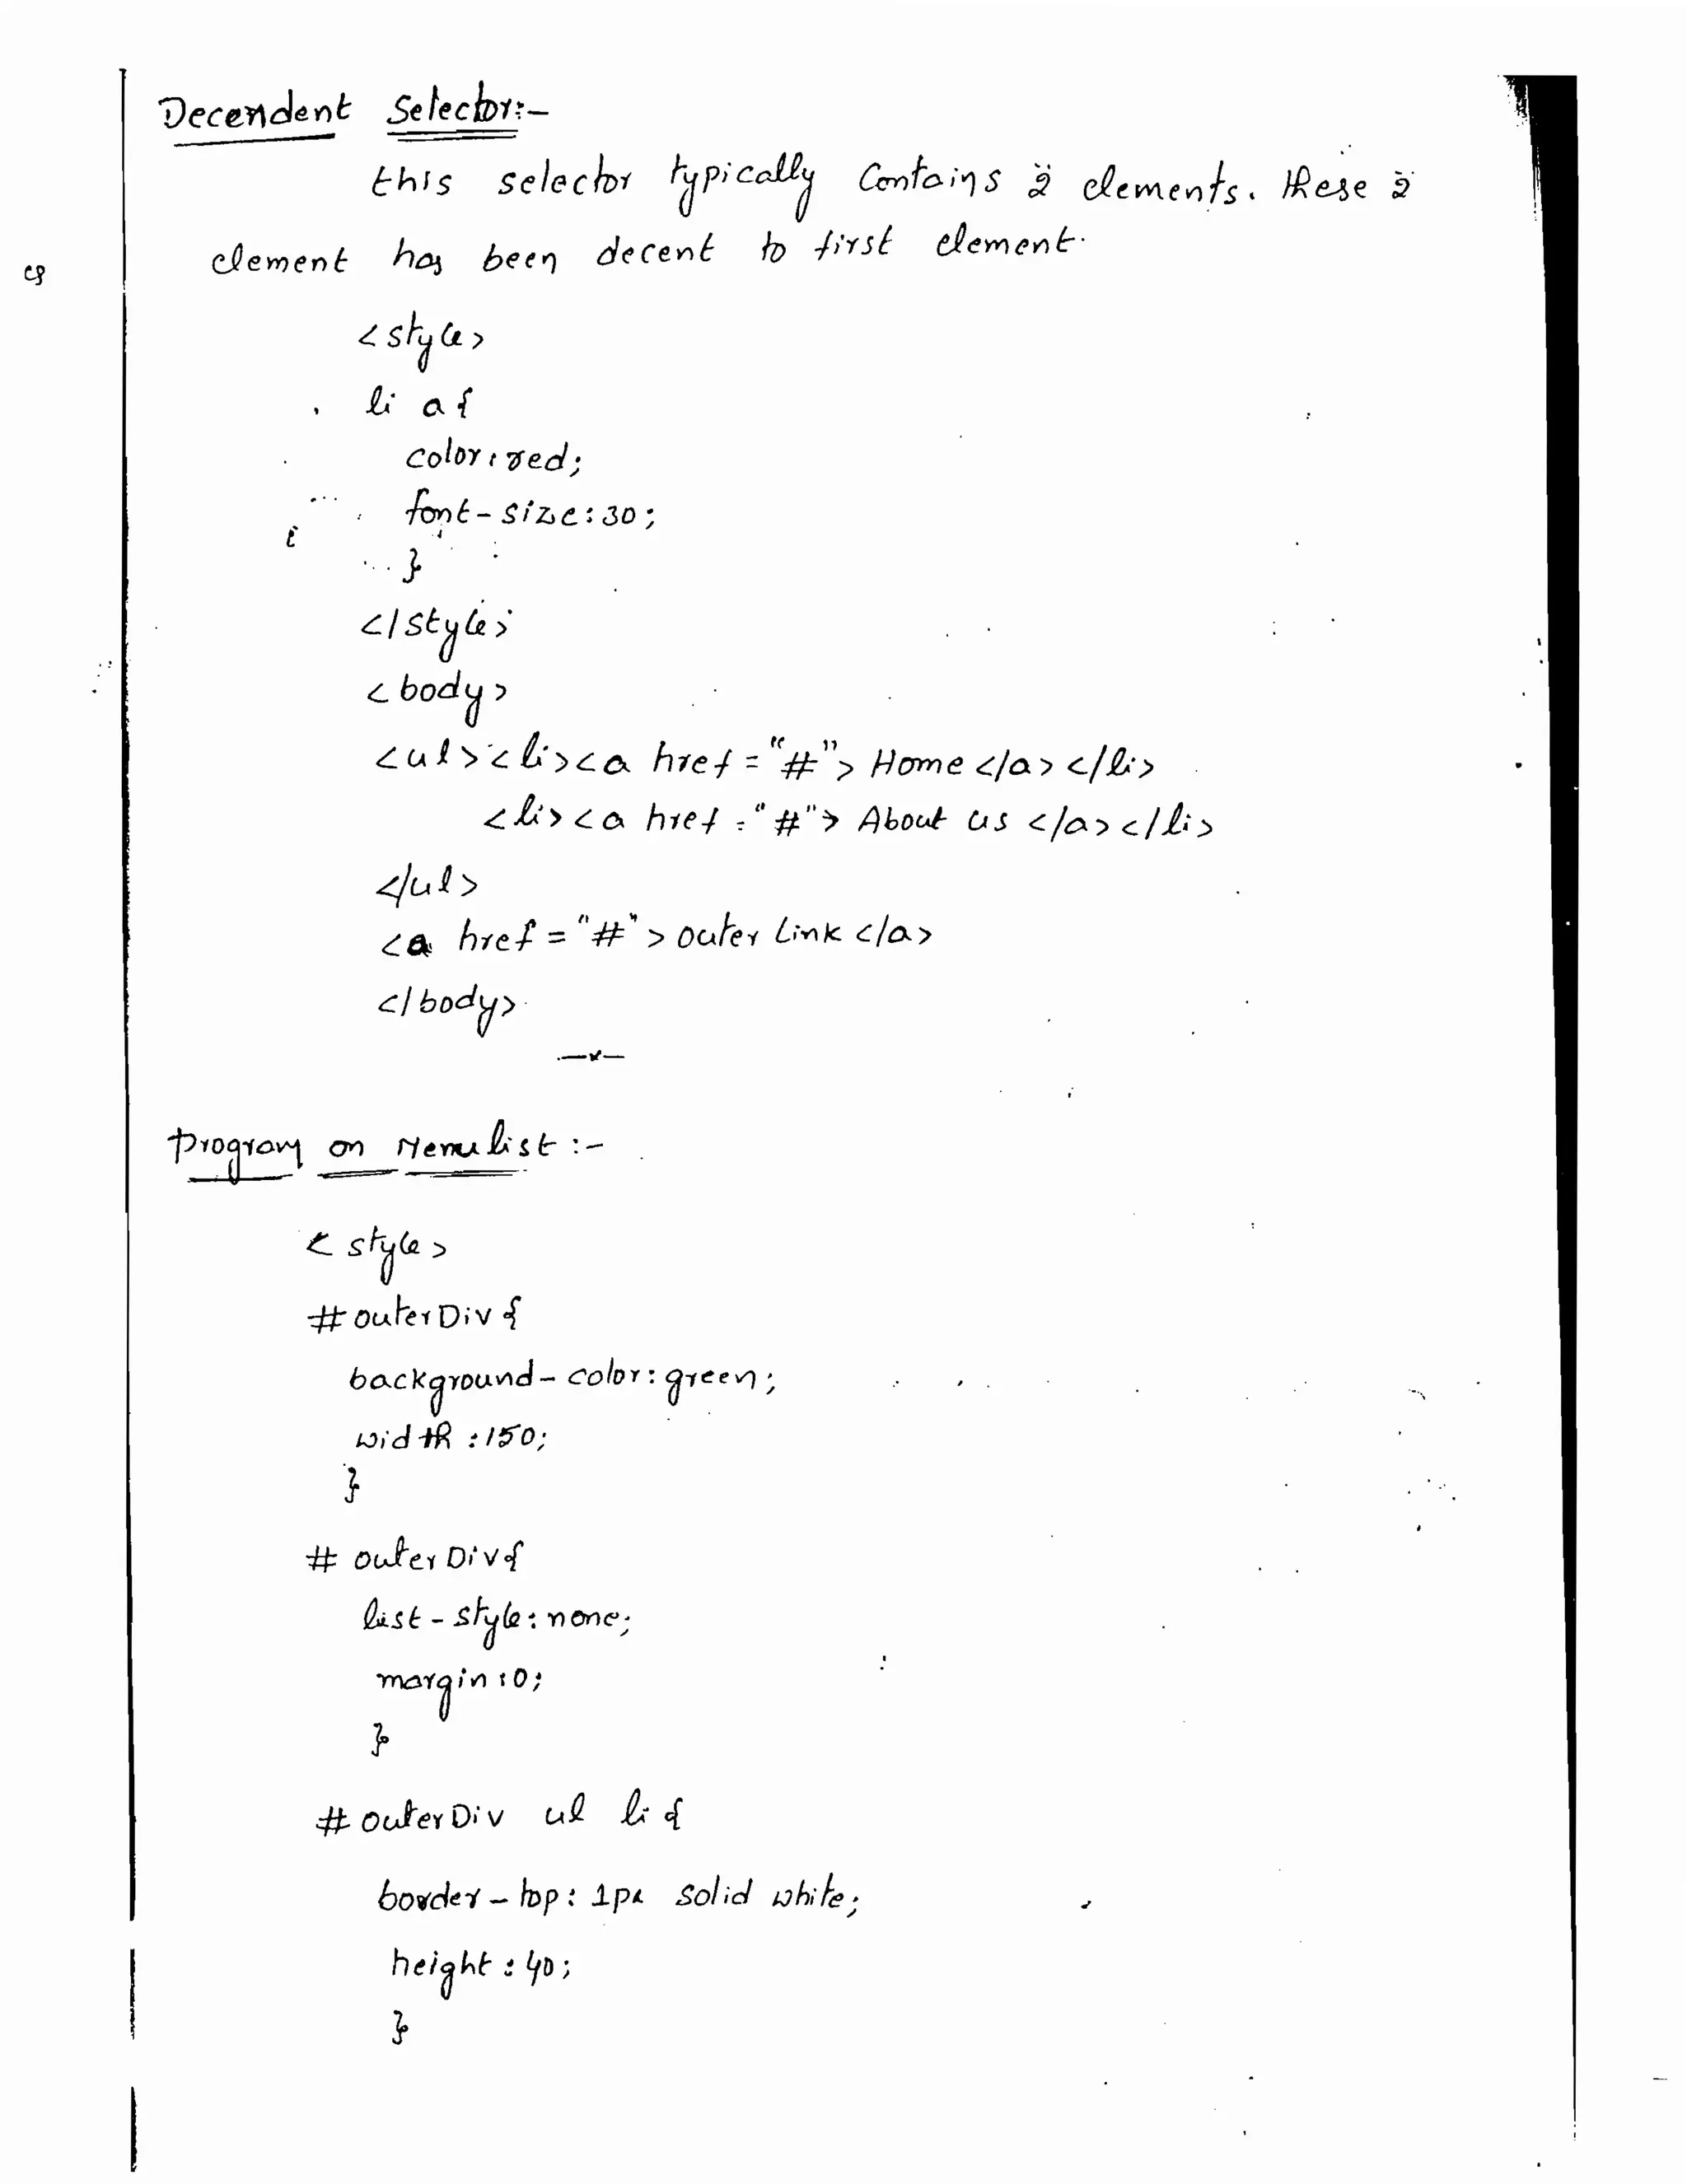 Decendent Selector:-
this selector typically Contains 2 elements. these 2
element has been decent to first element.
<style>
li a{
color:red;
font-size:30;
}
</style>
<body>
<ul><li><a href="#"> Home </a></li>
<li><a href="#"> About us </a></li>
</ul>
<a href="#"> outer Link </a>
</body>
—x—
Program on Menu list :-
<style>
#outerDiv{
background-color:green;
width:150;
}
# outer Div{
list-style:none;
margin:0;
}
#outerDiv ul li{
border-top: 1px solid white;
height:40;
}